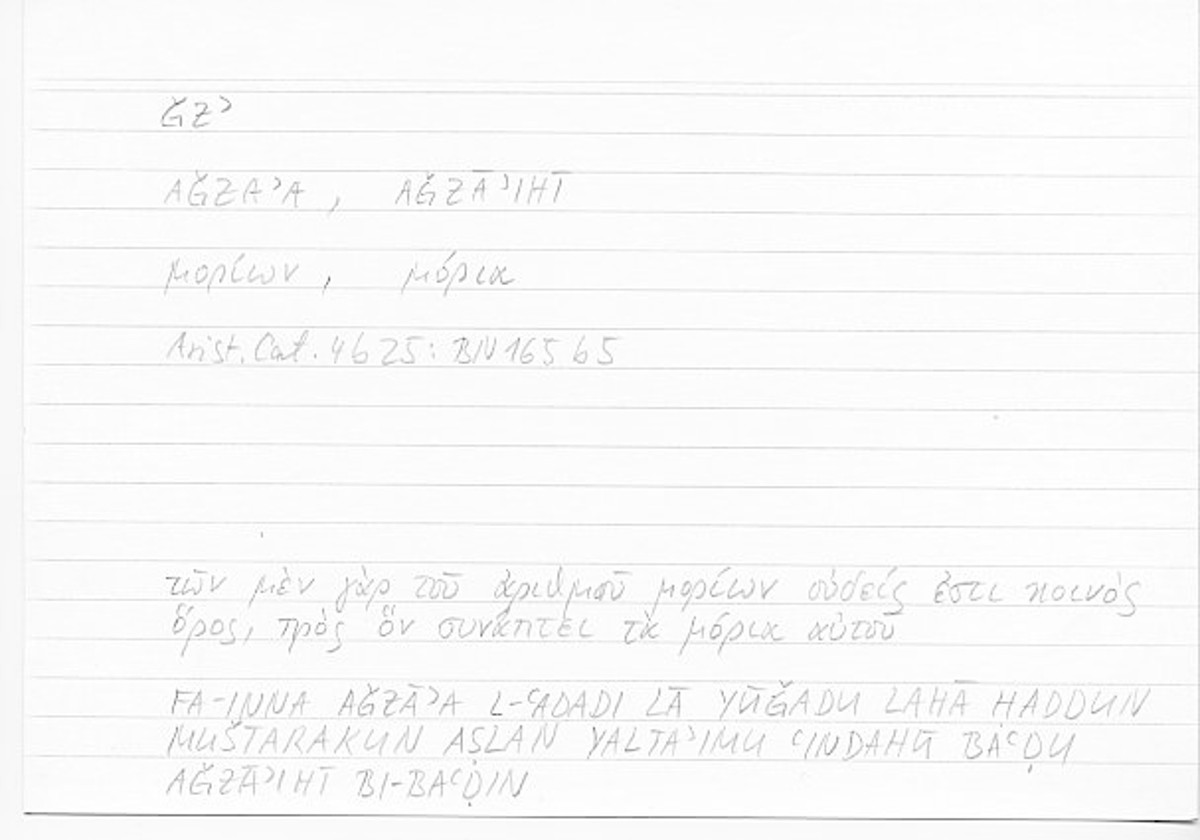 ǦZʾ
AǦZAʾA, AǦZĀʾIHĪ
μορίων, μόρια
Arist. Cat. 4b25: BN 165b5
τῶν μὲν γὰρ τοῦ ἀριθμοῦ μορίων οὐδείς ἐστι κοινὸς
ὅρος, πρὸς ὃν συνάπτει τὰ μόρια αὐτοῦ
FA-INNA AǦZĀʾA L-ʿADADI LĀ YŪǦADU LAHĀ ḤADDUN
MUŠTARAKUN AṢLAN YALTAʾIMU ʿINDAHŪ BAʿḌU
AǦZĀʾIHĪ BI-BAʿḌIN